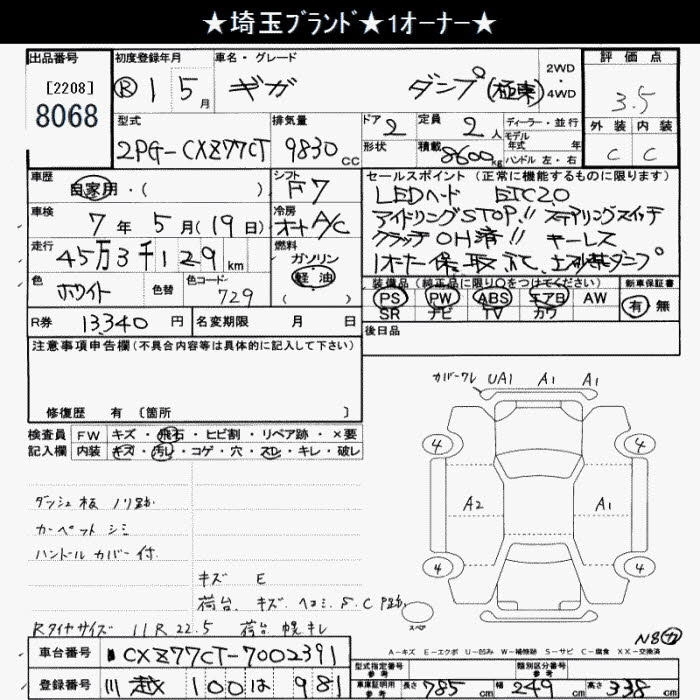 ★埼玉ブランド★1オーナー★
出品番号
[2208]
8068
初度登録年月
Ⓡ 1 5月
車名・グレード
ギガ ダンプ(極東)
2WD
・
4WD
評価点
3.5
外装 内装
C C
型式
2PG-CXZ77CT
排気量
9830 cc
ドア 2
形状
定員 2人
積載 8600kg
ディーラー・並行
モデル
年式 年
ハンドル 左・右
車歴
自家用・( )
シフト
F7
車検
7年5月(19日)
冷房
オートA/C
走行
45万3千129 km
燃料
ガソリン
軽油
( )
色
ホワイト
色替
色コード
729
セールスポイント (正常に機能するものに限ります)
LEDヘッド ETC2.0
アイドリングSTOP!! ステアリングスイッチ
クラッチOH済!! キーレス
1オーナー 保、取、記、土砂禁ダンプ
装備品(純正品に限り○をつけてください)
PS PW ABS エアB AW
SR ナビ TV カワ
新車保証書
有 無
R券 13,340 円
名変期限 月 日
後日品
注意事項申告欄(不具合内容等は具体的に記入して下さい)
修復歴 有 〔箇所 〕
検査員
記入欄
FW キズ・飛石・ヒビ割・リペア跡・×要
内装 キズ・汚レ・コゲ・穴・スレ・キレ・破レ
ダッシュ板 ノリ跡
カーペット シミ
ハンドル カバー付
キズ E
荷台 キズ. ヘコミ. S. C P跡.
Rタイヤサイズ 11R22.5 荷台 幌キレ
カバーワレ UA1 A1 A1
4 4
A2 A1
4 4
スペア
N8
A-キズ E-エクボ U-凹み W-補修跡 S-サビ C-腐食 XX-交換済
車台番号 CXZ77CT-7002391
登録番号 川越 100 は 981
型式指定番号
参考
類別区分番号
参考
車庫証明用
参考
長さ 785 cm 幅 249 cm 高さ 338 cm